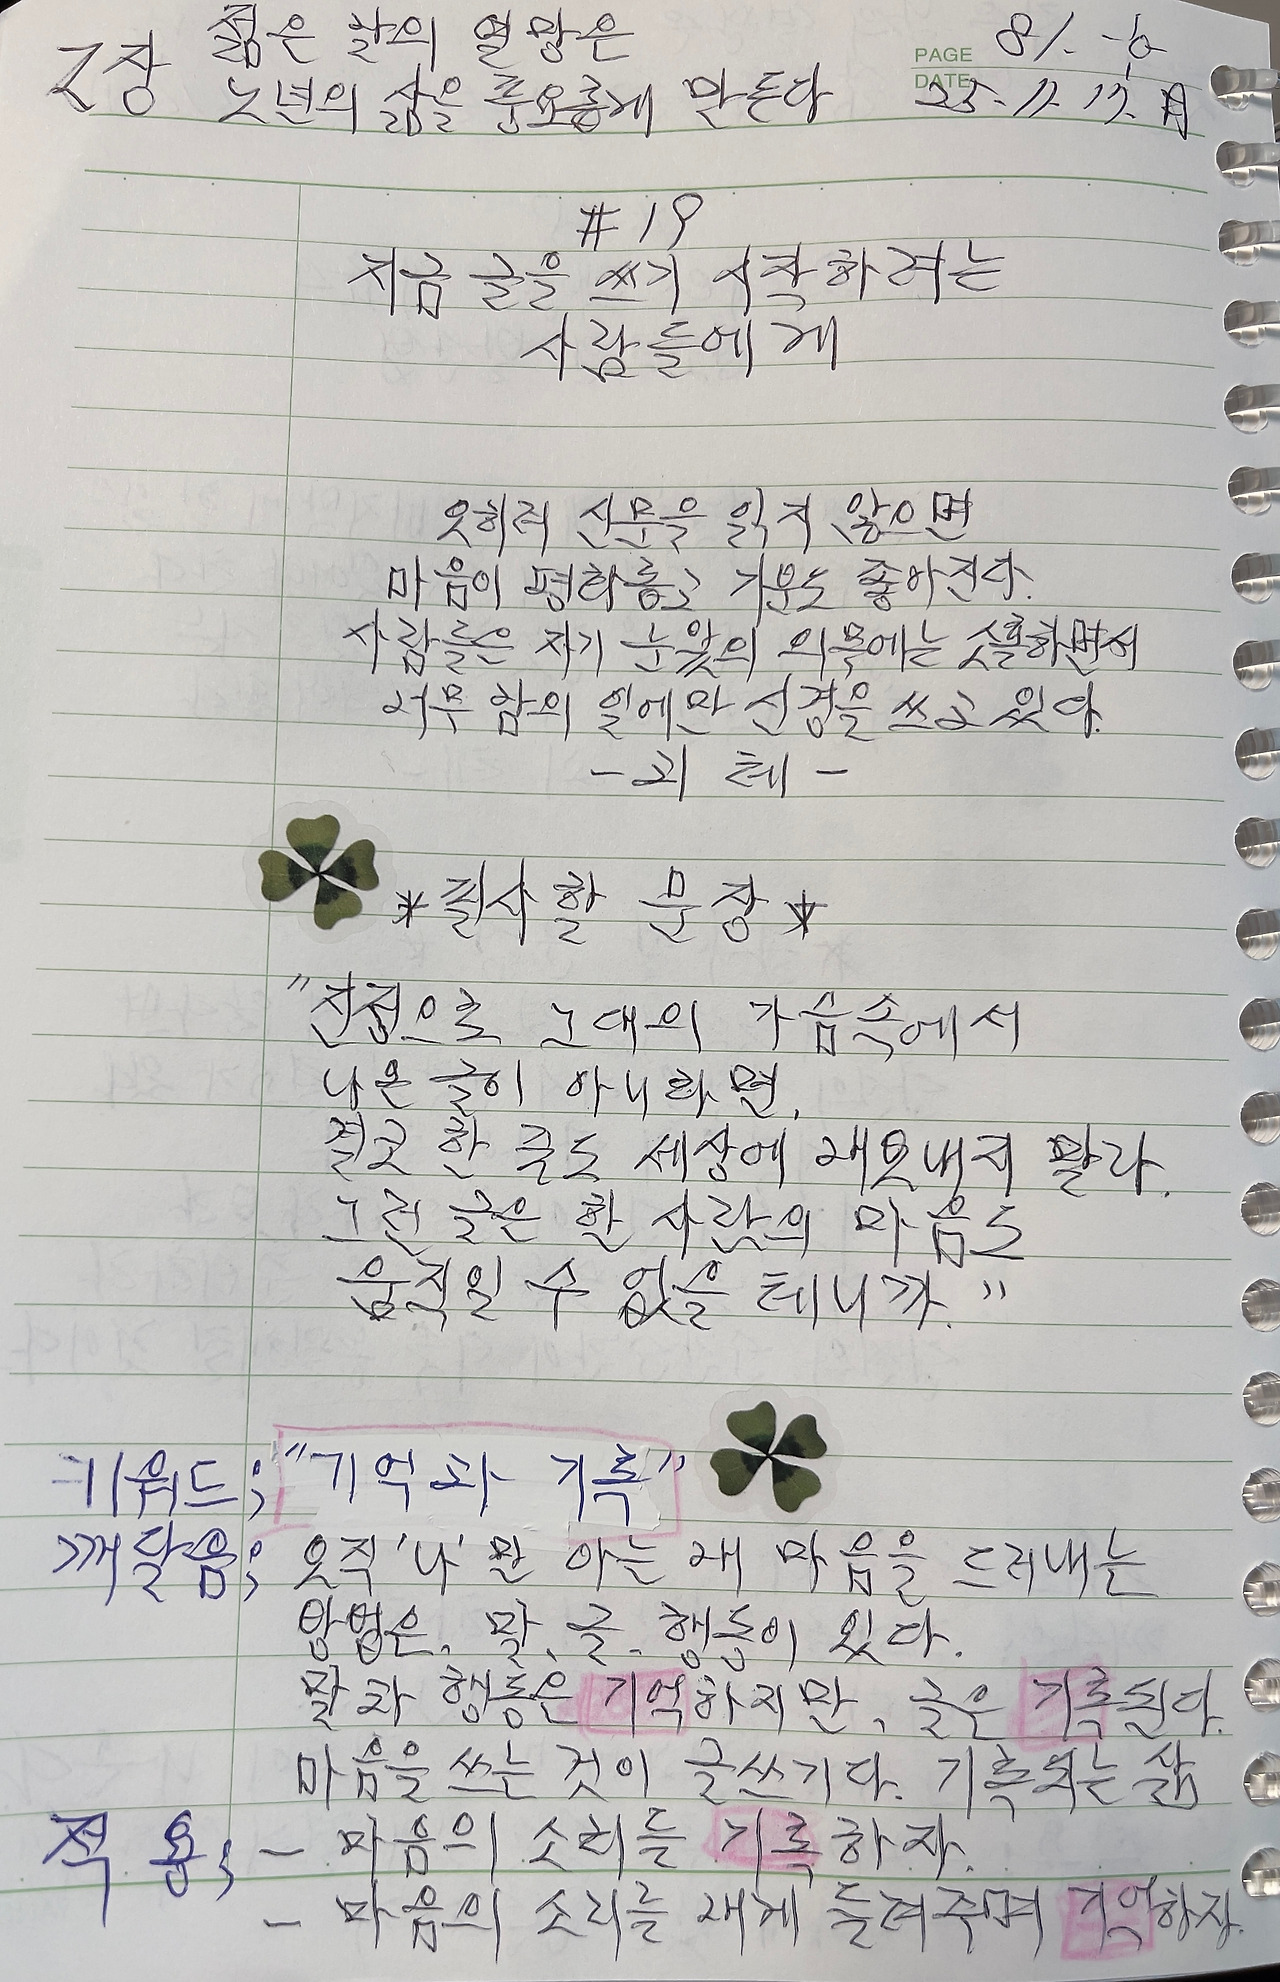 2장 젊은 날의 열망은
노년의 삶을 풍요롭게 만든다
PAGE 81.
DATE 25. 11. 17. 月
#19
지금 글을 쓰기 시작하려는
사람들에게
오히려 신문을 읽지 않으면
마음이 평화롭고 기분도 좋아진다.
사람들은 자기 눈앞의 의무에는 소홀하면서
너무 남의 일에만 신경을 쓰고 있다.
- 괴테 -
*필사할 문장*
"진정으로 그대의 가슴속에서
나온 글이 아니라면,
결코 한 줄도 세상에 내보내지 말라.
그런 글은 한 사람의 마음도
움직일 수 없을 테니까."
키워드; "기억과 기록"
깨달음; 오직 '나'만 아는 내 마음을 드러내는
방법은, 말, 글, 행동이 있다.
말과 행동은 기억하지만, 글은 기록된다.
마음을 쓰는 것이 글쓰기다. 기록되는 삶
적용; - 마음의 소리를 기록하자.
- 마음의 소리를 내게 들려주며 기억하자.